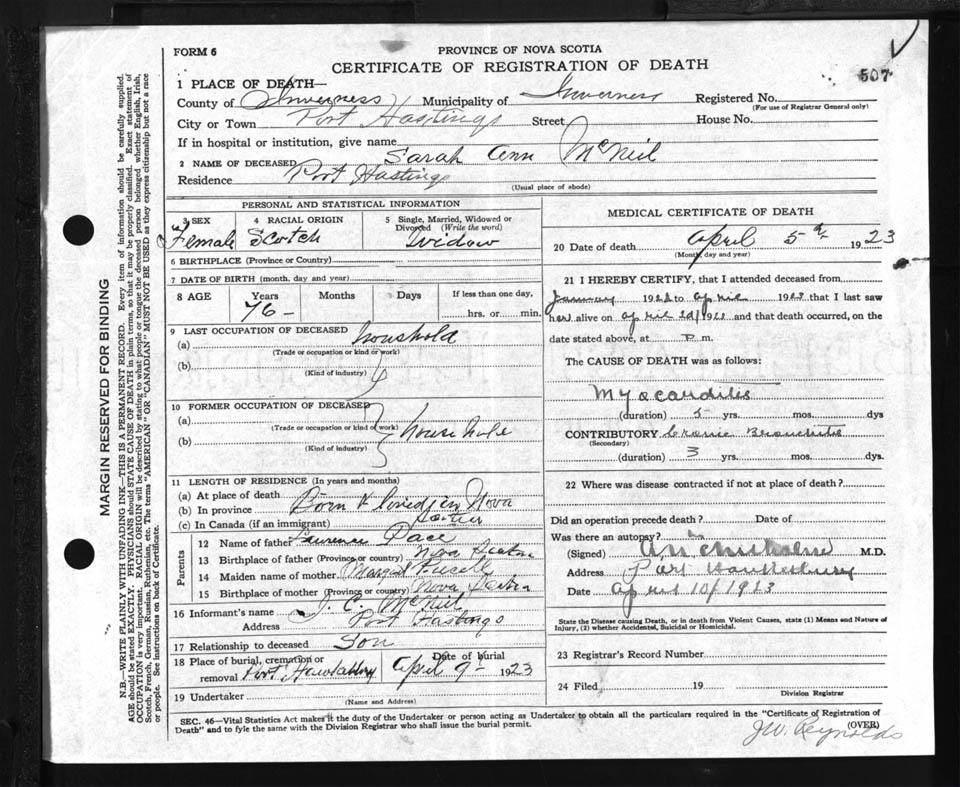 507
FORM 6
PROVINCE OF NOVA SCOTIA
CERTIFICATE OF REGISTRATION OF DEATH
1 PLACE OF DEATH—
County of Inverness Municipality of Inverness Registered No.
(For use of Registrar General only)
City or Town Port Hastings Street House No.
If in hospital or institution, give name
2 NAME OF DECEASED Sarah Ann McNeil
Residence Port Hastings
(Usual place of abode)
PERSONAL AND STATISTICAL INFORMATION
3 SEX 4 RACIAL ORIGIN 5 Single, Married, Widowed or Divorced (Write the word)
Female Scotch Widow
6 BIRTHPLACE (Province or Country)
7 DATE OF BIRTH (month, day and year)
8 AGE Years Months Days If less than one day,
76 – hrs. or min.
9 LAST OCCUPATION OF DECEASED
(a) household
(Trade or occupation or kind of work)
(b)
(Kind of industry)
10 FORMER OCCUPATION OF DECEASED
(a)
(Trade or occupation or kind of work)
(b)
(Kind of industry)
11 LENGTH OF RESIDENCE (In years and months)
(a) At place of death
(b) In province Born & lived in Nova
(c) In Canada (if an immigrant) Scotia
Parents
12 Name of father Laurence Pace
13 Birthplace of father (Province or country) Nova Scotia
14 Maiden name of mother Margaret
15 Birthplace of mother (Province or country) Nova Scotia
16 Informant's name J. C. McNeil
Address Port Hastings
17 Relationship to deceased Son
18 Place of burial, cremation or removal Port Hawkesbury Date of burial April 9 – 1923
19 Undertaker
(Name and Address)
MEDICAL CERTIFICATE OF DEATH
20 Date of death April 5th 1923
(Month, day and year)
21 I HEREBY CERTIFY, that I attended deceased from
January 192 to April 192 that I last saw
her alive on April 192 and that death occurred, on the
date stated above, at P m.
The CAUSE OF DEATH was as follows:
Myocarditis
(duration) 5 yrs. mos. dys
CONTRIBUTORY Cronic Bronchitis
(Secondary)
(duration) 3 yrs. mos. dys.
22 Where was disease contracted if not at place of death?
Did an operation precede death? Date of
Was there an autopsy? no
(Signed) Chisholm M.D.
Address Port Hawkesbury
Date April 10/1923
State the Disease causing Death, or in death from Violent Causes, state (1) Means and Nature of
Injury, (2) whether Accidental, Suicidal or Homicidal.
23 Registrar's Record Number
24 Filed 19
Division Registrar
SEC. 46—Vital Statistics Act makes it the duty of the Undertaker or person acting as Undertaker to obtain all the particulars required in the "Certificate of Registration of
Death" and to fyle the same with the Division Registrar who shall issue the burial permit.
(OVER)
J.W. Reynolds
MARGIN RESERVED FOR BINDING
N.B.—WRITE PLAINLY WITH UNFADING INK—THIS IS A PERMANENT RECORD. Every item of information should be carefully supplied.
AGE should be stated EXACTLY. PHYSICIANS should STATE CAUSE OF DEATH in plain terms, so that it may be properly classified. Exact statement of
OCCUPATION is very important. RACIAL ORIGIN will be described by stating to what people or tongue the deceased person belonged whether English, Irish,
Scotch, French, German, Russian, Ruthenian, etc. The terms "AMERICAN" OR "CANADIAN" MUST NOT BE USED as they express citizenship but not a race
or people. See instructions on back of Certificate.